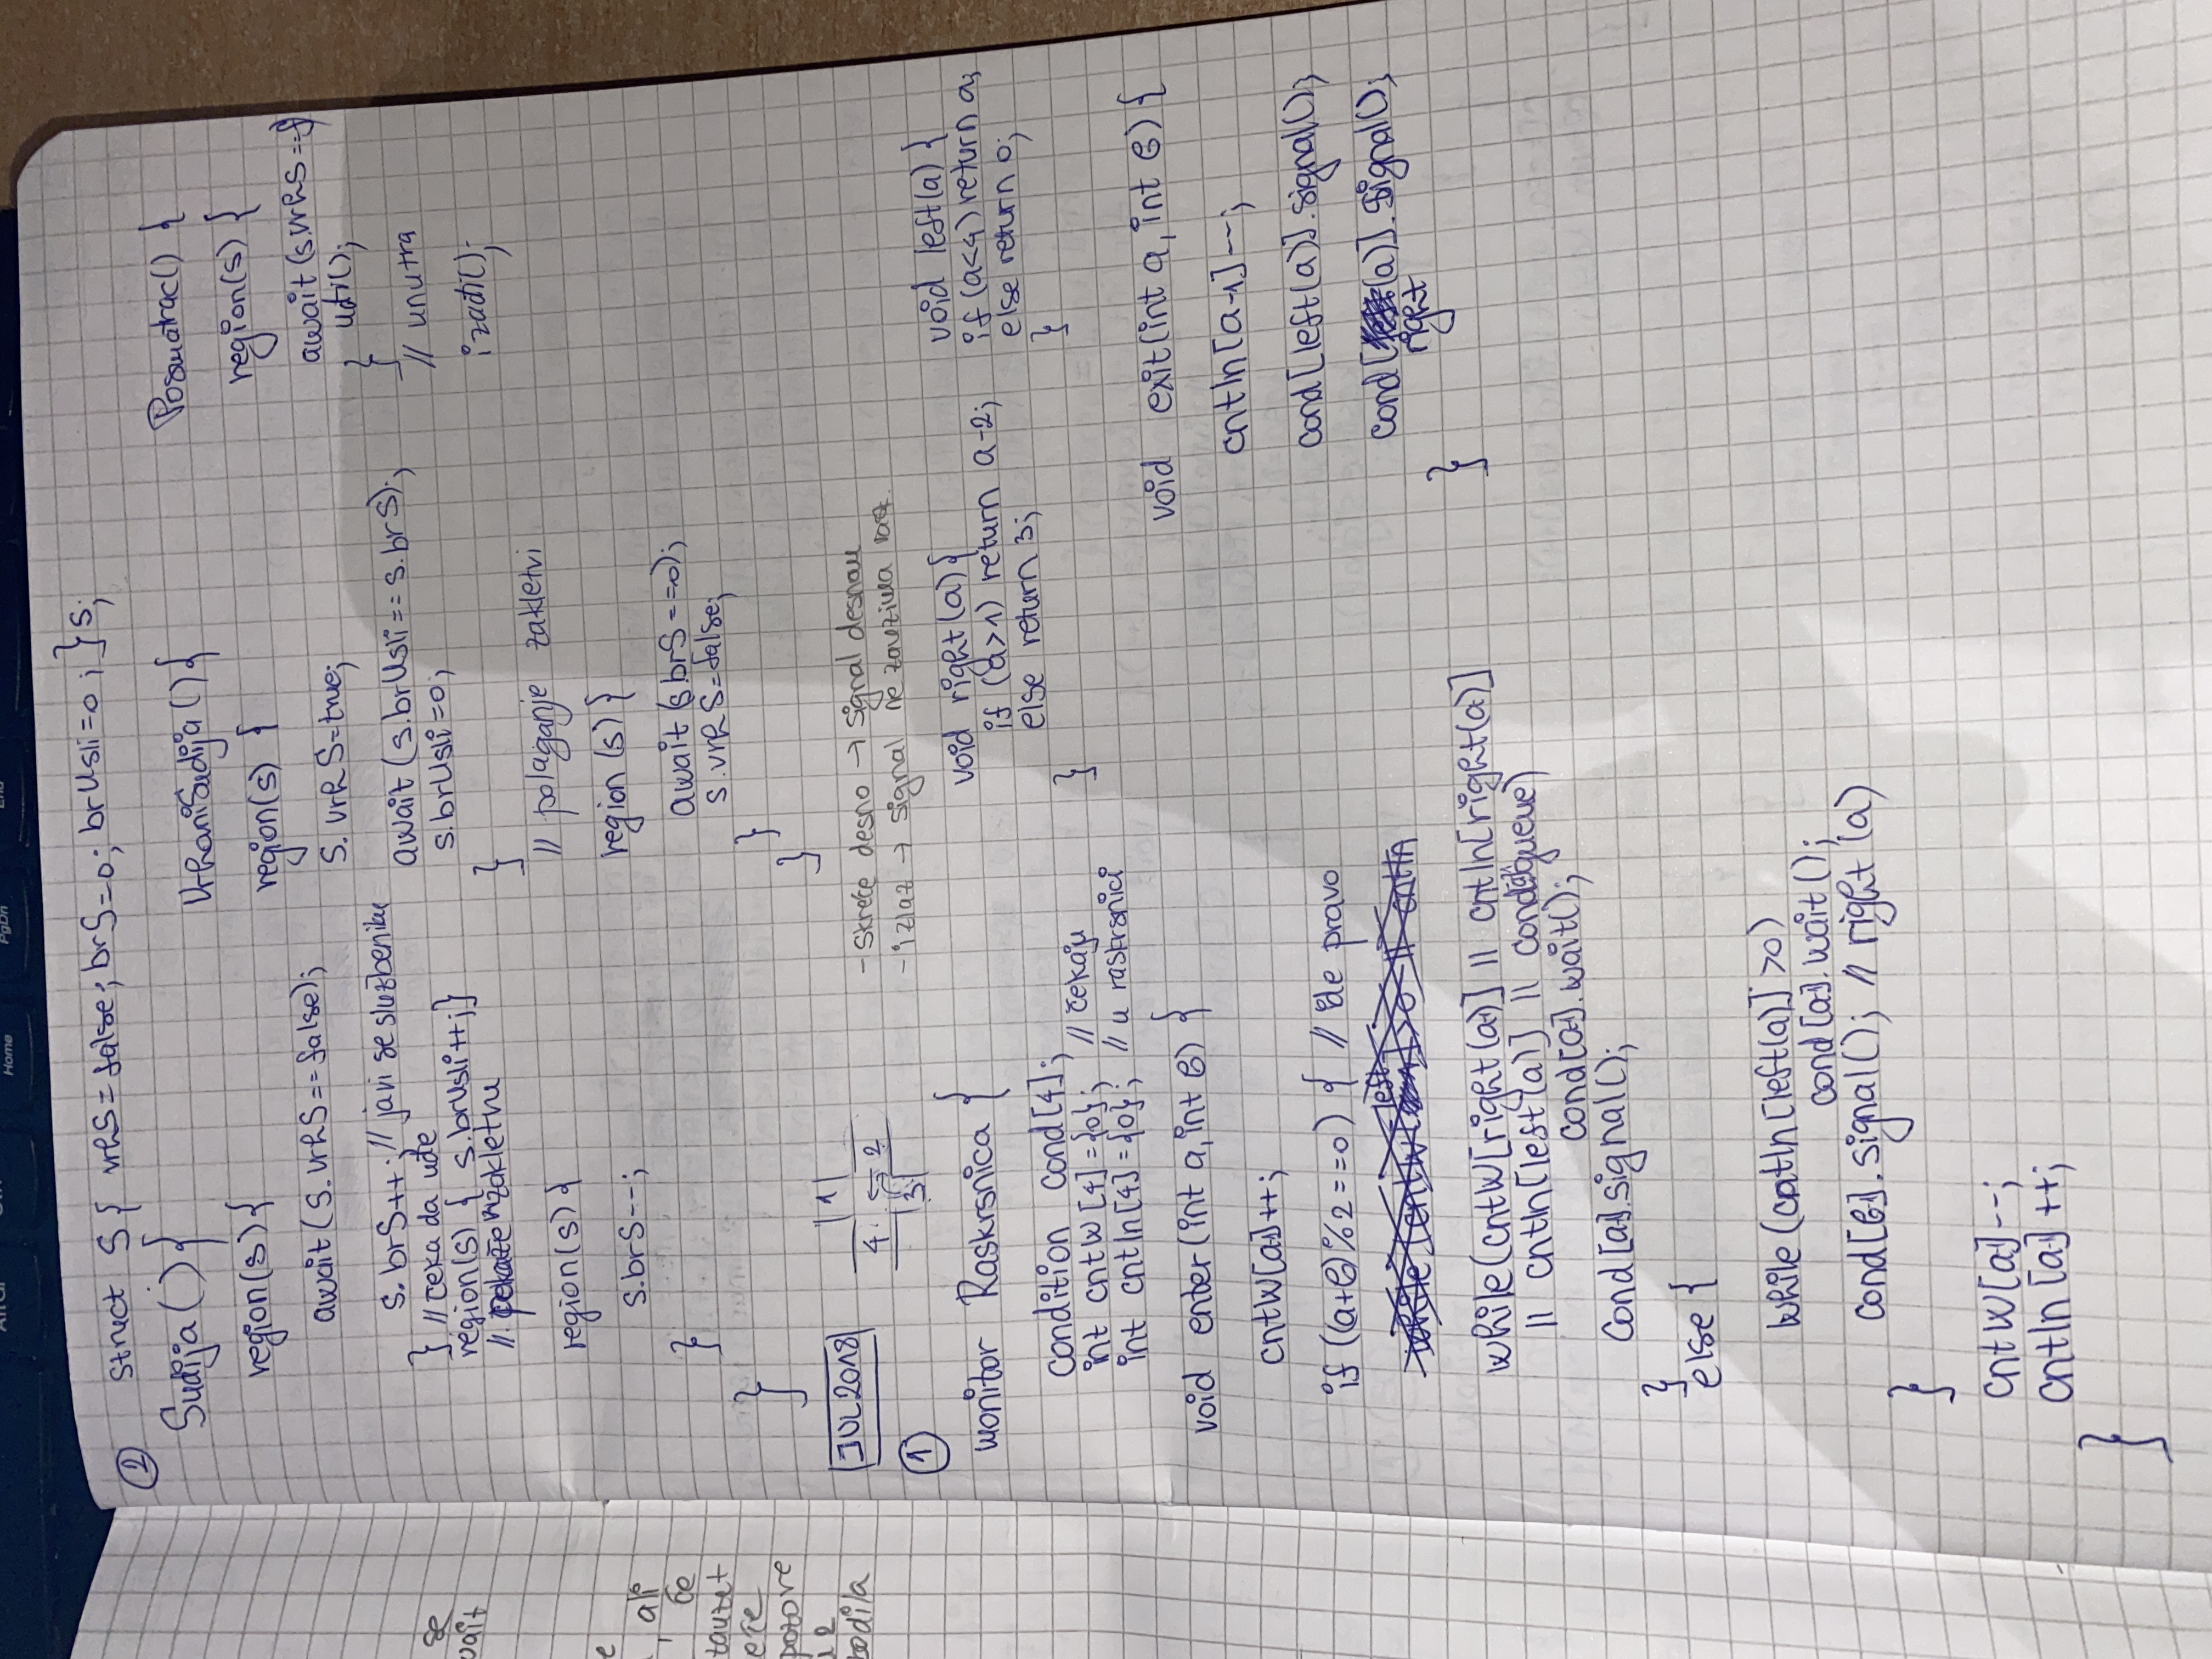 Home
PgDn
se
e
, ali
će
ere
2
② struct S{ vrhS=false; brS=0; brUsli=0; }s;
Sudija(){
region(s){
await(s.vrhS==false);
s.brS++; // javi se sluzbeniku
} // čeka da uđe
region(s) { s.brUsli++;}
// zakletvu
region(s){
s.brS--;
}
}
VrhovniSudija(){
region(s) {
s.vrhS=true;
await(s.brUsli==s.brS);
s.brUsli=0;
}
// polaganje zakletvi
region(s){
await(s.brS==0);
s.vrhS=false;
}
}
Posmatrac() {
region(s) {
await(s.vrhS==f)
uđi();
}
// unutra
izađi();
JUL2018
1
4 2
3
- skreće desno → signal desnom
- izlaz → signal ne zauzima
①
monitor Raskrsnica {
condition cond[4];
int cntW[4]={0}; // čekaju
int cntIn[4]={0}; // u raskrsnici
void right(a){
if (a>1) return a-2;
else return 3;
}
void left(a) {
if (a<4) return a;
else return 0;
}
void enter(int a, int b) {
cntW[a-1]++;
if ((a+b)%2==0) { // ide pravo
while(cntW[right(a)] || cntIn[right(a)]
|| cntIn[left(a)] || queue)
cond[a-1].wait();
cond[a-1].signal();
}
else {
while (cntIn[left(a)]>0)
cond[a-1].wait();
cond[b-1].signal(); // right (a)
}
cntW[a-1]--;
cntIn[a-1]++;
}
void exit(int a, int b) {
cntIn[a-1]--;
cond[left(a)].signal();
cond[right(a)].signal();
}